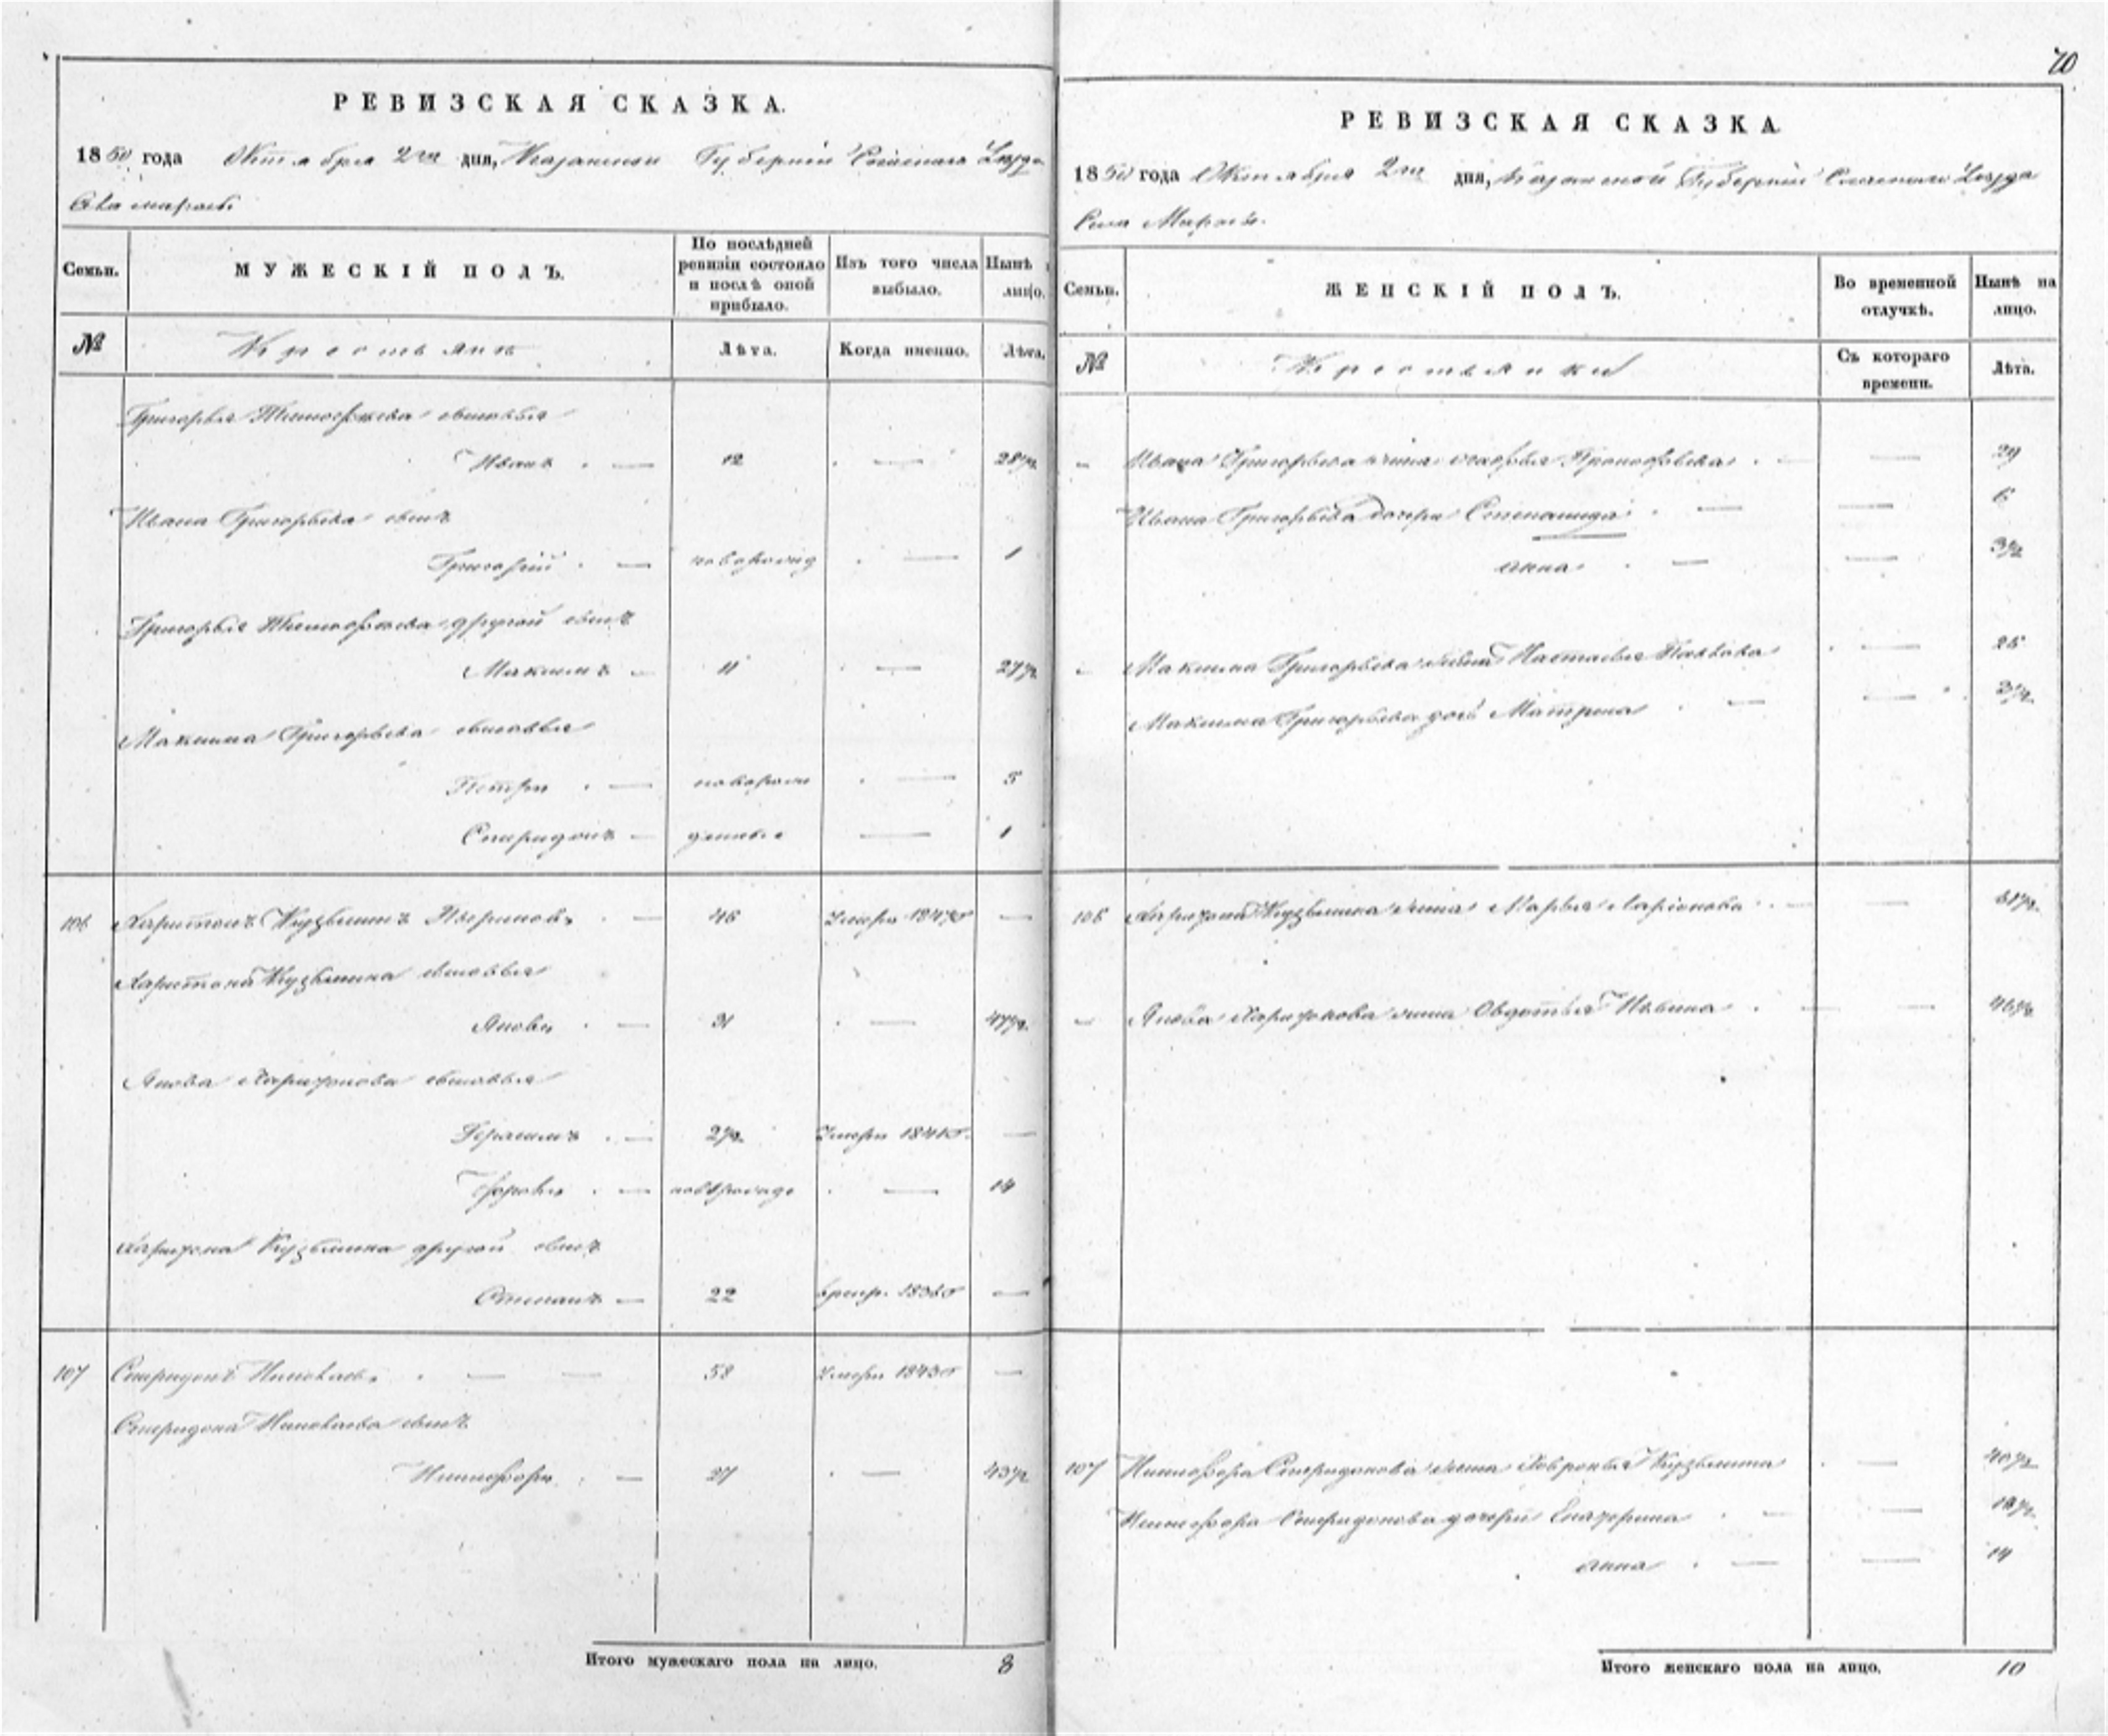 РЕВИЗСКАЯ СКАЗКА.
1850 года Октября 2го дня, Казанской Губернии Спаского Уезда
Села
Семьи.
МУЖЕСКІЙ ПОЛЪ.
По послѣдней ревизіи состояло и послѣ оной прибыло.
Изъ того числа выбыло.
Нынѣ лицо.
№
Крестьянъ
Лѣта.
Когда именно.
Лѣта.
Григорья сыновья
Иванъ 12 28½
Ивана Григорьева сынъ
Григорій новорожд 1
Григорья другой сынъ
Максимъ 11 27½
Максима Григорьева сыновья
Петръ новорож 5
Спиридонъ денные 1
106 Харитонъ Кузьминъ 46 Умеръ —
Харитона Кузьмина сыновья
Яковъ 31 47½
Якова Харитонова сыновья
Герасимъ 2½ Умеръ —
новорожд 14
Харитона Кузьмина другой сынъ
Степанъ 22 —
107 Спиридонъ 58 Умеръ —
Спиридона сынъ
Никифоръ 27 43½
Итого мужескаго пола на лицо. 8
70
РЕВИЗСКАЯ СКАЗКА
1850 года Октября 2го дня, Казанской Губерніи Спаского Уезда
Села
Семьи.
ЖЕНСКІЙ ПОЛЪ.
Во временной отлучкѣ.
Нынѣ на лицо.
№
Крестьянки
Съ котораго времени.
Лѣта.
Ивана Григорьева жена Прокофьева 29
Ивана Григорьева дочери Степанида 6
Анна 3½
Максима Григорьева жена Настасья 26
Максима Григорьева дочь Матрена
106 Харитона Кузьмина жена Марья Ларіонова
Якова Харитонова жена Овдотья 46½
107 Никифора Спиридонова жена Кузьмина 40½
Никифора Спиридонова дочери Екатерина
Анна 14
Итого женскаго пола на лицо. 10